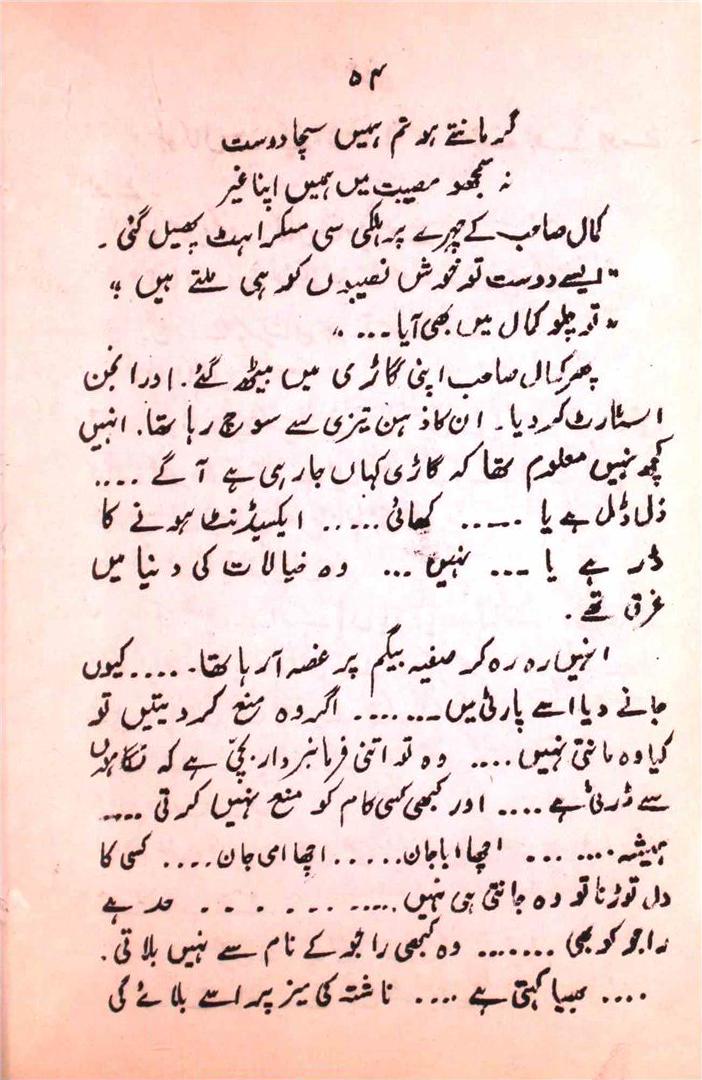 ۵۴
گر مانتے ہو تم ہمیں سچا دوست
نہ سمجھو مصیبت میں ہمیں اپنا غیر
کمال صاحب کے چہرے پر ہلکی سی مسکراہٹ پھیل گئی ۔
"ایسے دوست تو خوش نصیبوں کو ہی ملتے ہیں"
"تو چلو کمال میں بھی آیا ...."
پھر کمال صاحب اپنی گاڑی میں بیٹھ گئے. اور انجن
اسٹارٹ کر دیا۔ ان کا ذہن تیزی سے سوچ رہا تھا. انہیں
کچھ نہیں معلوم تھا کہ گاڑی کہاں جا رہی ہے آگے ....
دل دل ہے یا ..... کھائی ..... ایکسیڈنٹ ہونے کا
ڈر ہے یا ... نہیں ... وہ خیالات کی دنیا میں
غرق تھے .
انہیں رہ رہ کر صفیہ بیگم پر غصہ آ رہا تھا ..... کیوں
جانے دیا اسے پارٹی میں ....... اگر وہ منع کر دیتیں تو
کیا وہ مانتی نہیں .... وہ تو اتنی فرمانبردار بچی ہے کہ نگاہوں
سے ڈرتی ہے .... اور کبھی کسی کام کو منع نہیں کرتی ....
ہمیشہ ....... اچھا ابا جان ..... اچھا امی جان .... کسی کا
دل توڑنا تو وہ جانتی ہی نہیں ........... حد ہے
راجو کو بھی ....... وہ کبھی راجو کے نام سے نہیں بلاتی .
.... بھیا کہتی ہے .... ناشتہ کی میز پر اسے بلائے گی